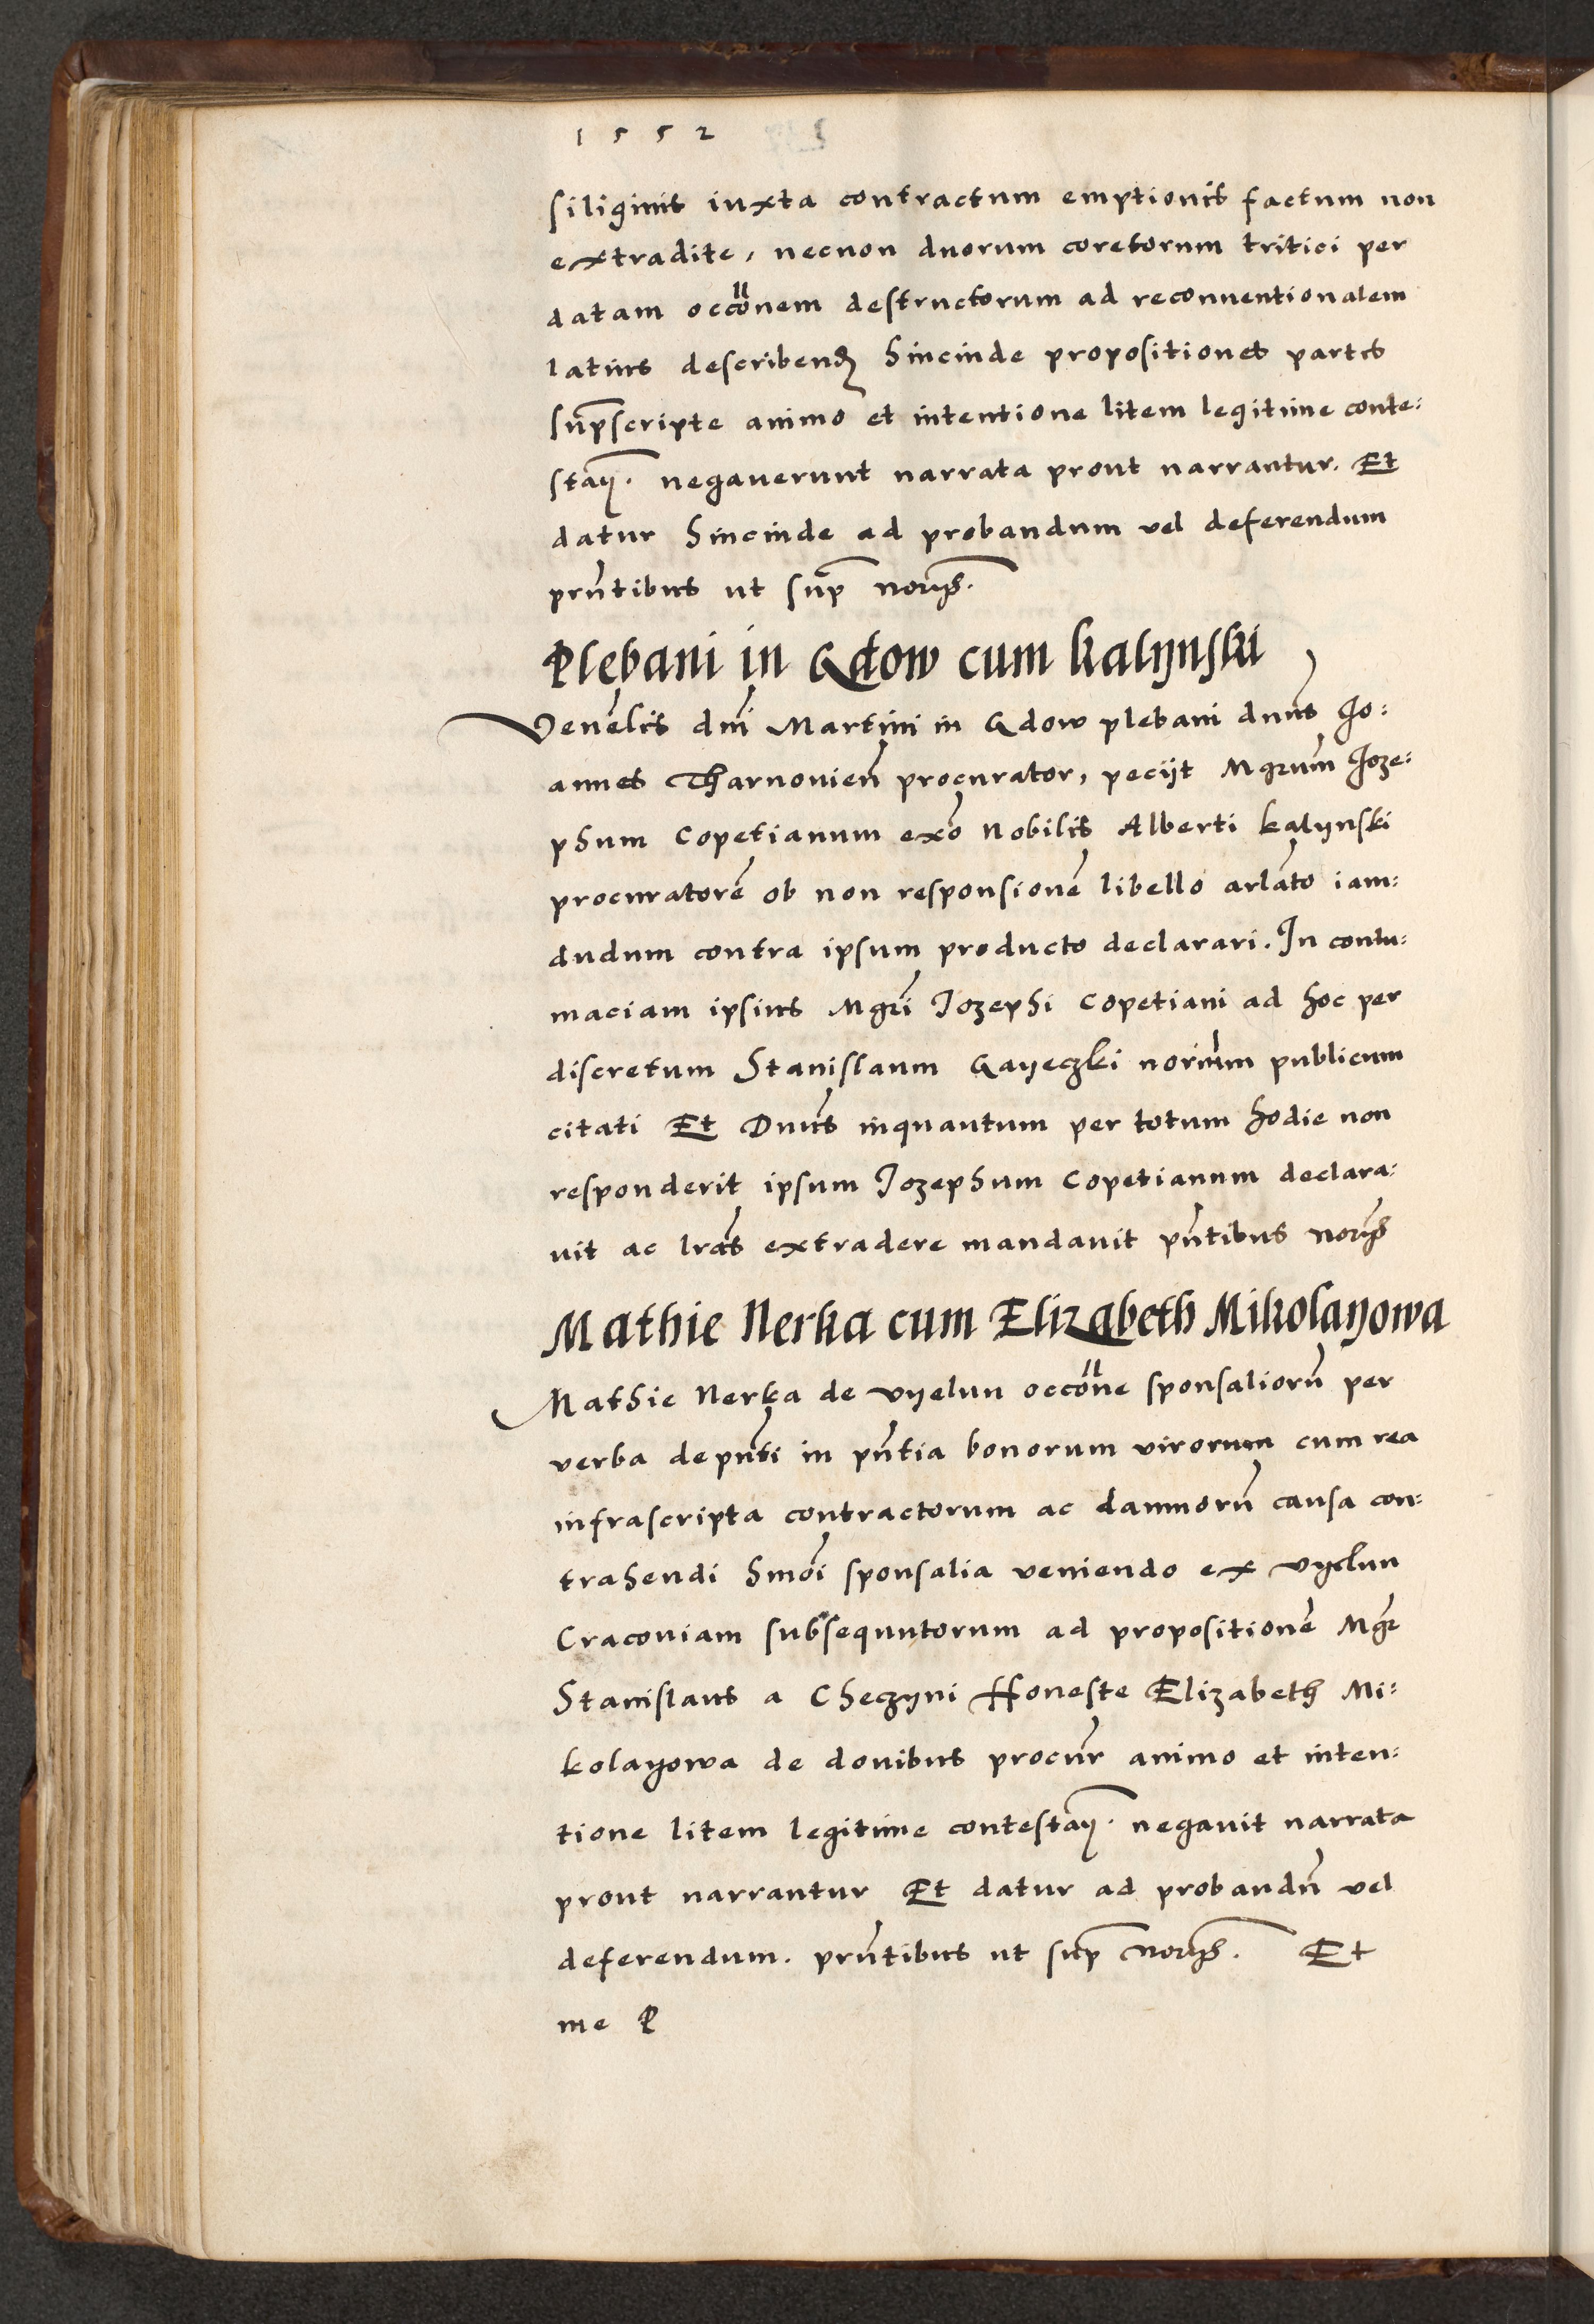 1552
siliginis iuxta contractum emptionis factum non
extradite, necnon duorum coretorum tritici per
datam occõnem destructorum ad reconuentionalem
latius describend hincinde propositiones partes
supscripte animo et intentione litem legitime conte:
stan. negauerunt narrata prout narrantur. Et
datur hincinde ad probandum vel deferendum
prñtibus ut sup norijs.
Plebani in Gdow cum kalynski
Venẽlis dñi Martini in Gdow plebani dnus Jo:
annes Tharnovieñ procurator, pecijt Mgrum Joze:
phum Copetianum exõ Nobilis Alberti kalynski
procuratorẽ ob non responsionẽ libello arlato iam:
dudum contra ipsum producto declarari. In contu:
maciam ipsius Mgri Jozephi Copetiani ad hoc per
discretum Stanislaum Gayeczki norium publicum
citati Et Dnus inquantum per totum hodie non
responderit ipsum Jozephum Copetianum declara:
uit ac lras extradere mandauit pñtibus norijs
Mathie Nerka cum Elizabeth Mikolayowa
Mathie Nerka de vyelun occõne sponsaliorũ per
verba de pñti in pñtia bonorum virorum cum rea
infrascripta contractorum ac damnorũ causa con:
trahendi hmõi sponsalia veniendo ex vyelun
Craconiam subsequutorum ad propositionẽ Mgr
Stanislaus a Checzyni Honeste Elizabeth Mi:
kolayowa de donibus procur animo et inten:
tione litem legitime contestan. negauit narrata
prout narrantur Et datur ad probandũ vel
deferendum. prñtibus ut sup norijs. Et
me P